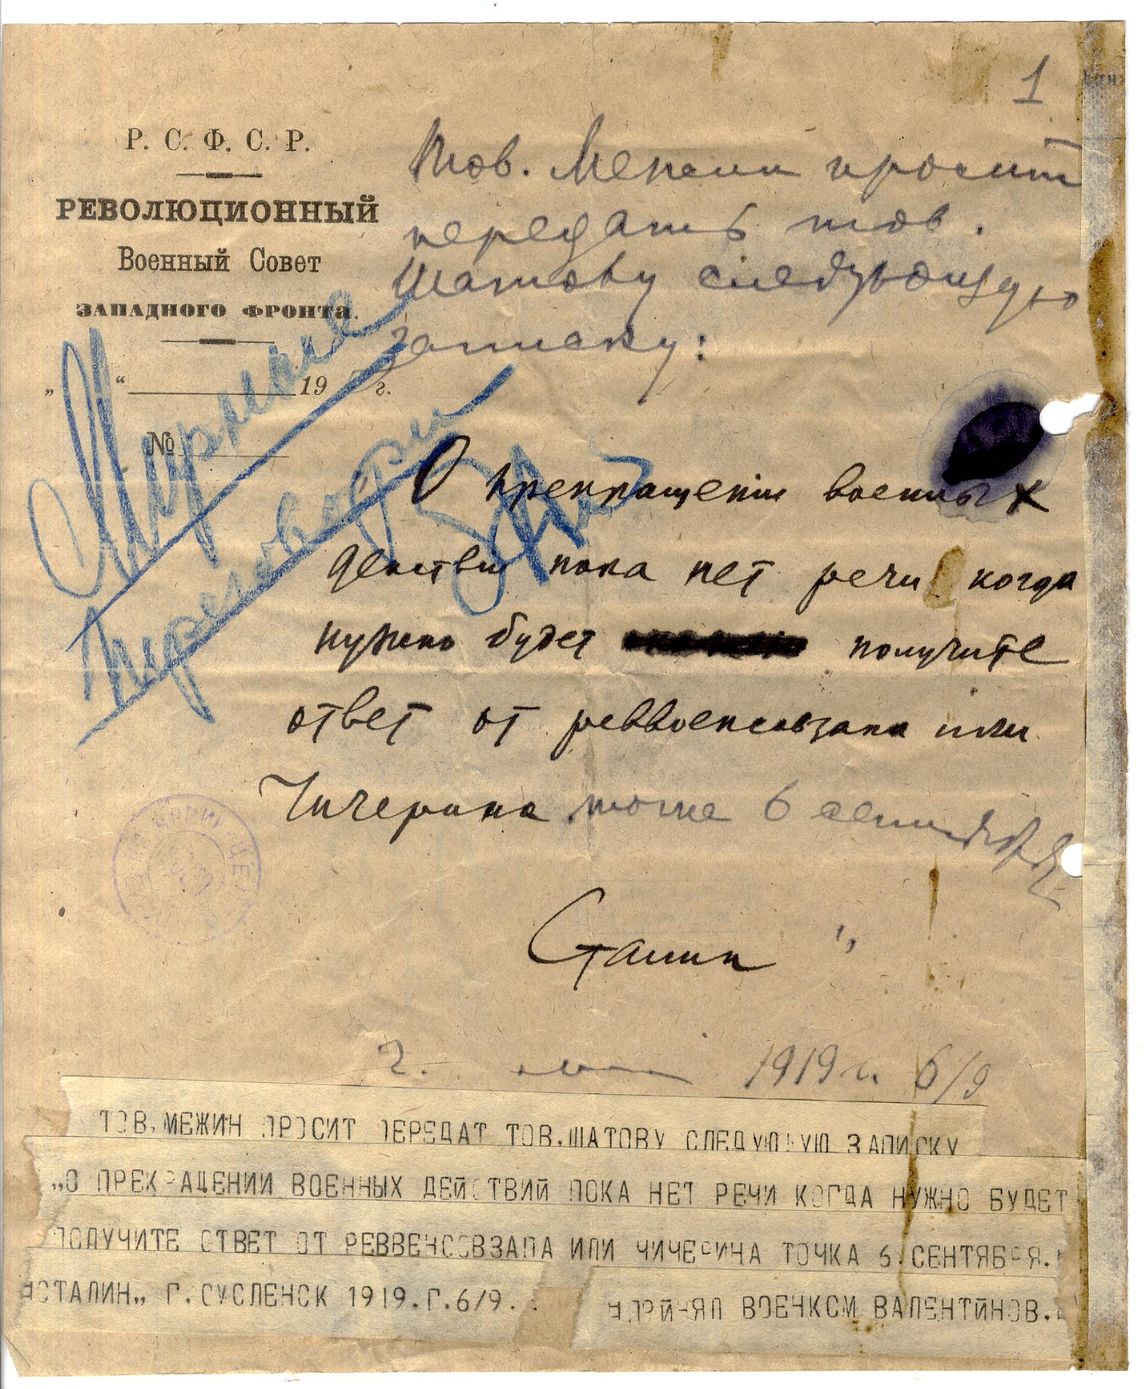 1
Р. С. Ф. С. Р.
РЕВОЛЮЦИОННЫЙ
Военный Совет
ЗАПАДНОГО ФРОНТА.
„ “ 19 г.
№
Тов. просит
передать тов.
Шатову следующую
записку:
переговоры
О прекращении военных
действи пока нет речи когда
нужно будет получите
ответ от реввоенсовзапа или
Чичерина точка 6 сентября
Сталин"
г. 1919 г. 6/9
ТОВ. МЕЖИН ПРОСИТ ПЕРЕДАТ ТОВ. ШАТОВУ СЛЕДУЮЩУЮ ЗАПИСКУ
„О ПРЕКРАЩЕНИИ ВОЕННЫХ ДЕЙСТВИЙ ПОКА НЕТ РЕЧИ КОГДА НУЖНО БУДЕТ
ПОЛУЧИТЕ ОТВЕТ ОТ РЕВВЕНСОВЗАПА ИЛИ ЧИЧЕРИНА ТОЧКА 6 СЕНТЯБРЯ.
СТАЛИН„ Г. СУСЛЕНСК 1919.Г.6/9. ПРИНЯЛ ВОЕНКОМ ВАЛЕНТИНОВ.